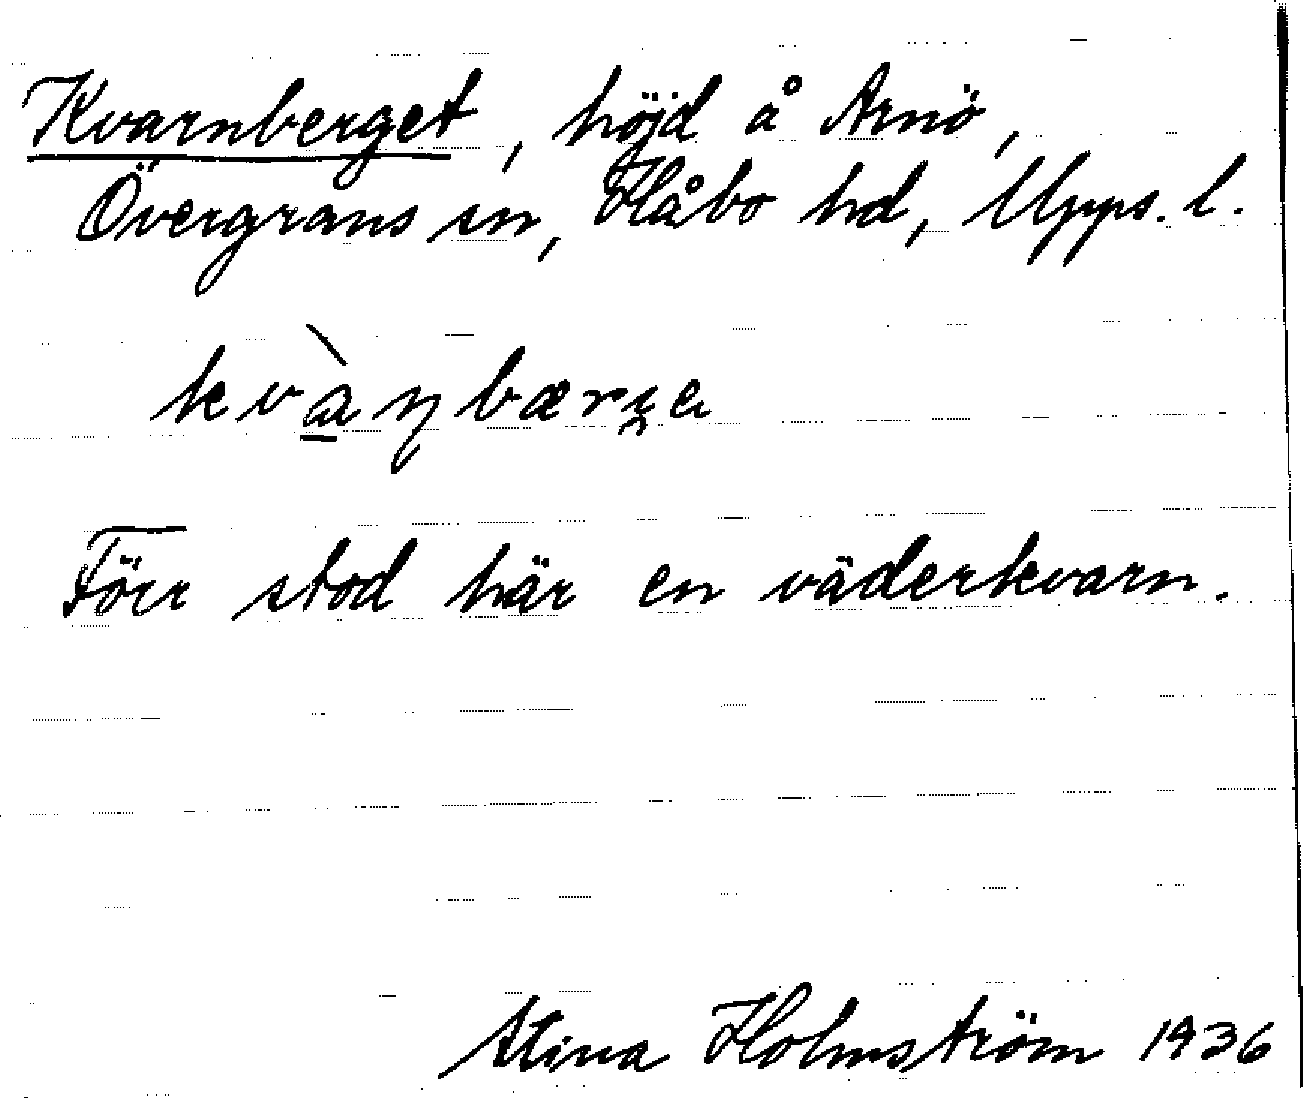 Kvarnberget, höjd å Arnö,
Övergrans sn, Håbo hd, Upps. l.
Förr stod här en väderkvarn.
Stina Holmström 1936